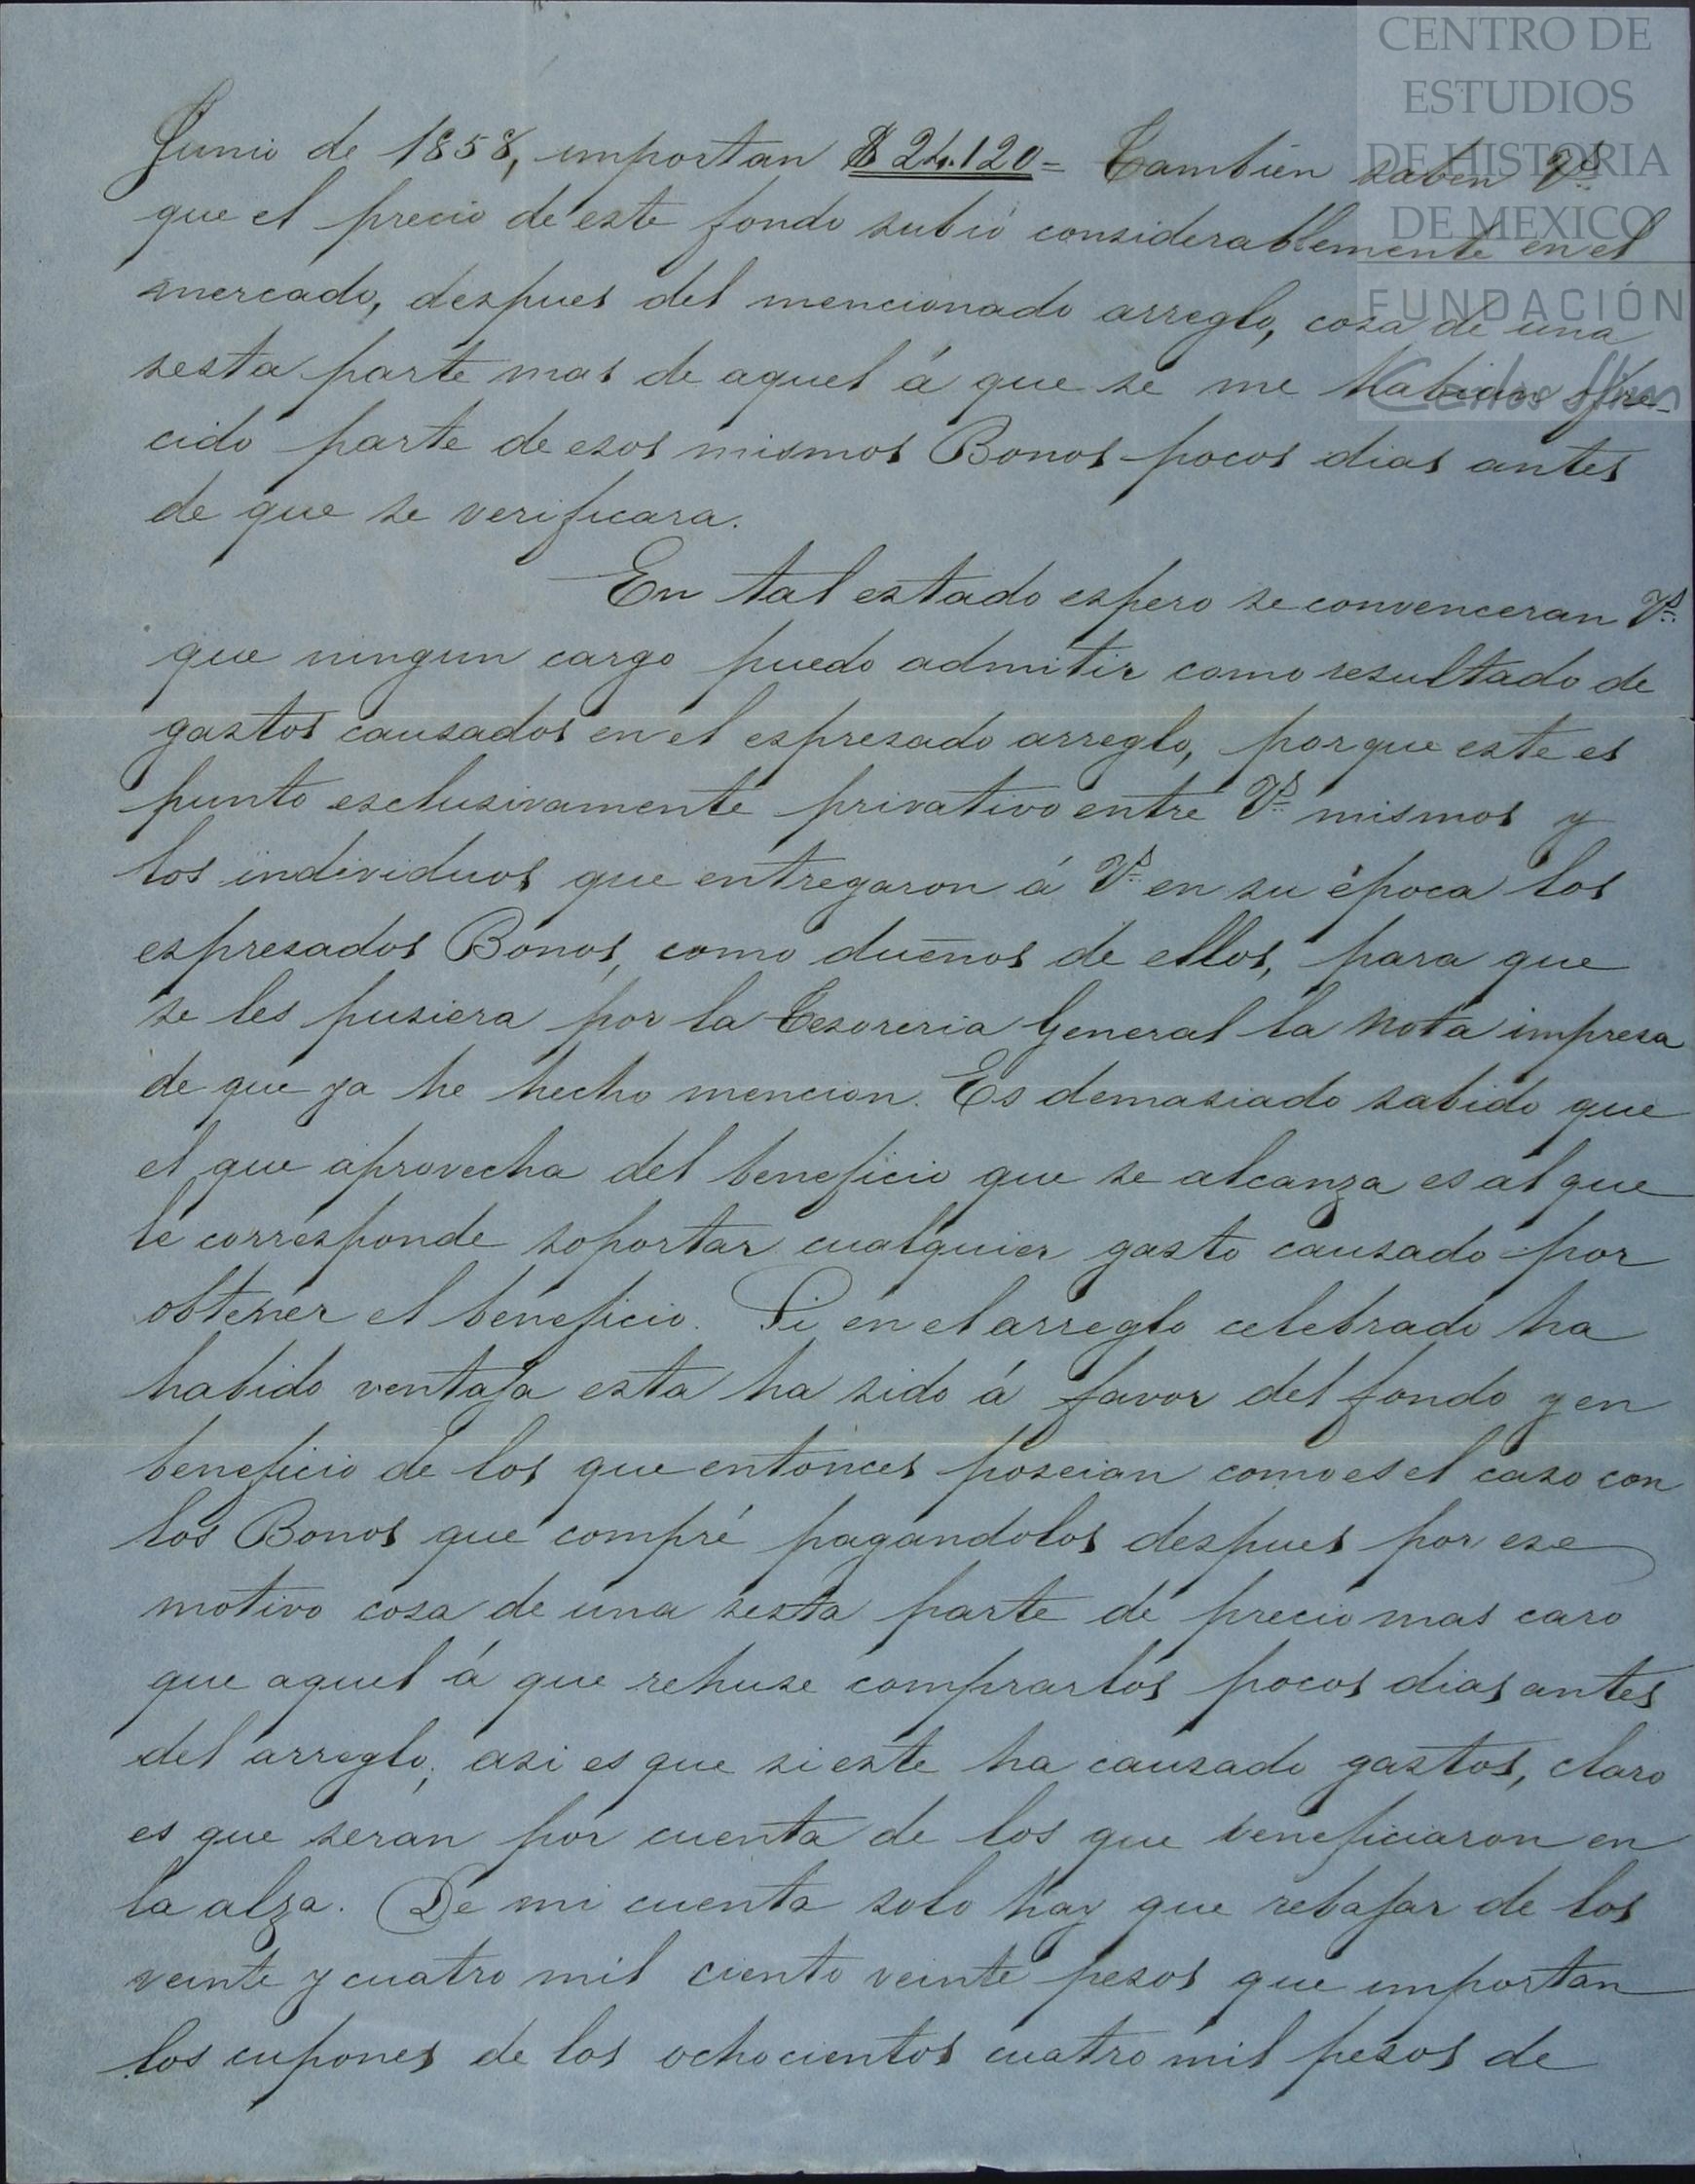 CENTRO DE
ESTUDIOS
DE HISTORIA
DE MEXICO
FUNDACIÓN
Carlos Slim
Junio de 1858, importan $24.120= Tambien saben Vs
que el precio de este fondo subió considerablemente en el
mercado, despues del mencionado arreglo, cosa de una
sesta parte mas de aquel á que se me habian ofre-
cido parte de esos mismos Bonos pocos dias antes
de que se verificara.
En tal estado espero se convenceran Vs
que ningun cargo puedo admitir como resultado de
gastos causados en el espresado arreglo, porque este es
punto esclusivamente privativo entre Vs mismos y
los individuos que entregaron á Vs en su época los
espresados Bonos, como dueños de ellos, para que
se les pusiera por la Tesoreria General la nota impresa
de que ya he hecho mencion. Es demasiado sabido que
el que aprovecha del beneficio que se alcanza es al que
le corresponde soportar cualquier gasto causado por
obtener el beneficio. Si en el arreglo celebrado ha
habido ventaja esta ha sido á favor del fondo y en
beneficio de los que entonces poseian como es el caso con
los Bonos que compré pagandolos despues por ese
motivo cosa de una sesta parte de precio mas caro
que aquel á que rehuse comprarlos pocos dias antes
del arreglo; asi es que si este ha causado gastos, claro
es que seran por cuenta de los que veneficiaron en
la alza. De mi cuenta solo hay que rebajar de los
veinte y cuatro mil ciento veinte pesos que importan
los cupones de los ochocientos cuatro mil pesos de